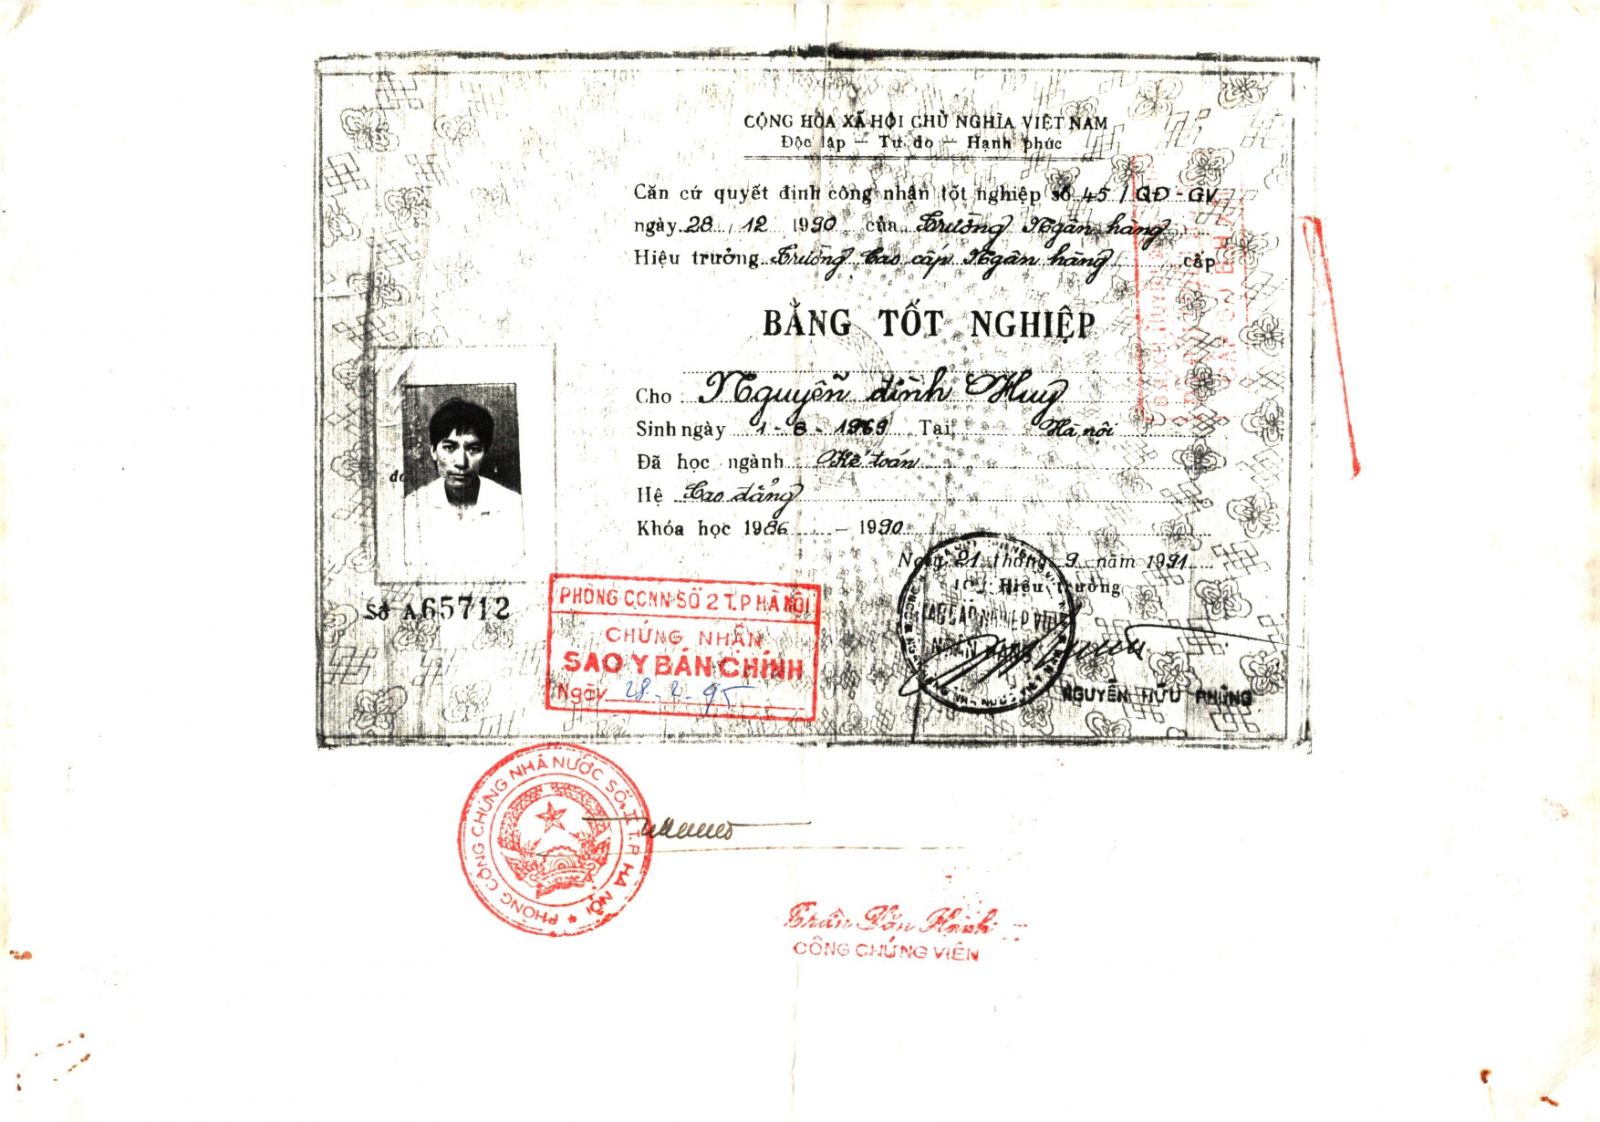 CỘNG HÒA XÃ HỘI CHỦ NGHĨA VIỆT NAM
Độc lập — Tự do — Hạnh phúc
Căn cứ quyết định công nhận tốt nghiệp số 45 / QĐ - GV
ngày 28 / 12 1990 của Trường Ngân hàng
Hiệu trưởng Trường Cao cấp Ngân hàng cấp
BẰNG TỐT NGHIỆP
Cho Nguyễn đình Huy
Sinh ngày 1 - 8 - 1969 Tại Hà nội
Đã học ngành Kế toán
Hệ Cao đẳng
Khóa học 1986 — 1990
Ngày 21 tháng 9 năm 1991
Hiệu trưởng
Số A 65712
NGUYỄN HỮU PHÙNG
PHÒNG CCNN SỐ 2 T.P HÀ NỘI
CHỨNG NHẬN
SAO Y BẢN CHÍNH
Ngày 28-2-95
PHÒNG CÔNG CHỨNG NHÀ NƯỚC SỐ II T.P HÀ NỘI
Trần Văn Hạnh
CÔNG CHỨNG VIÊN